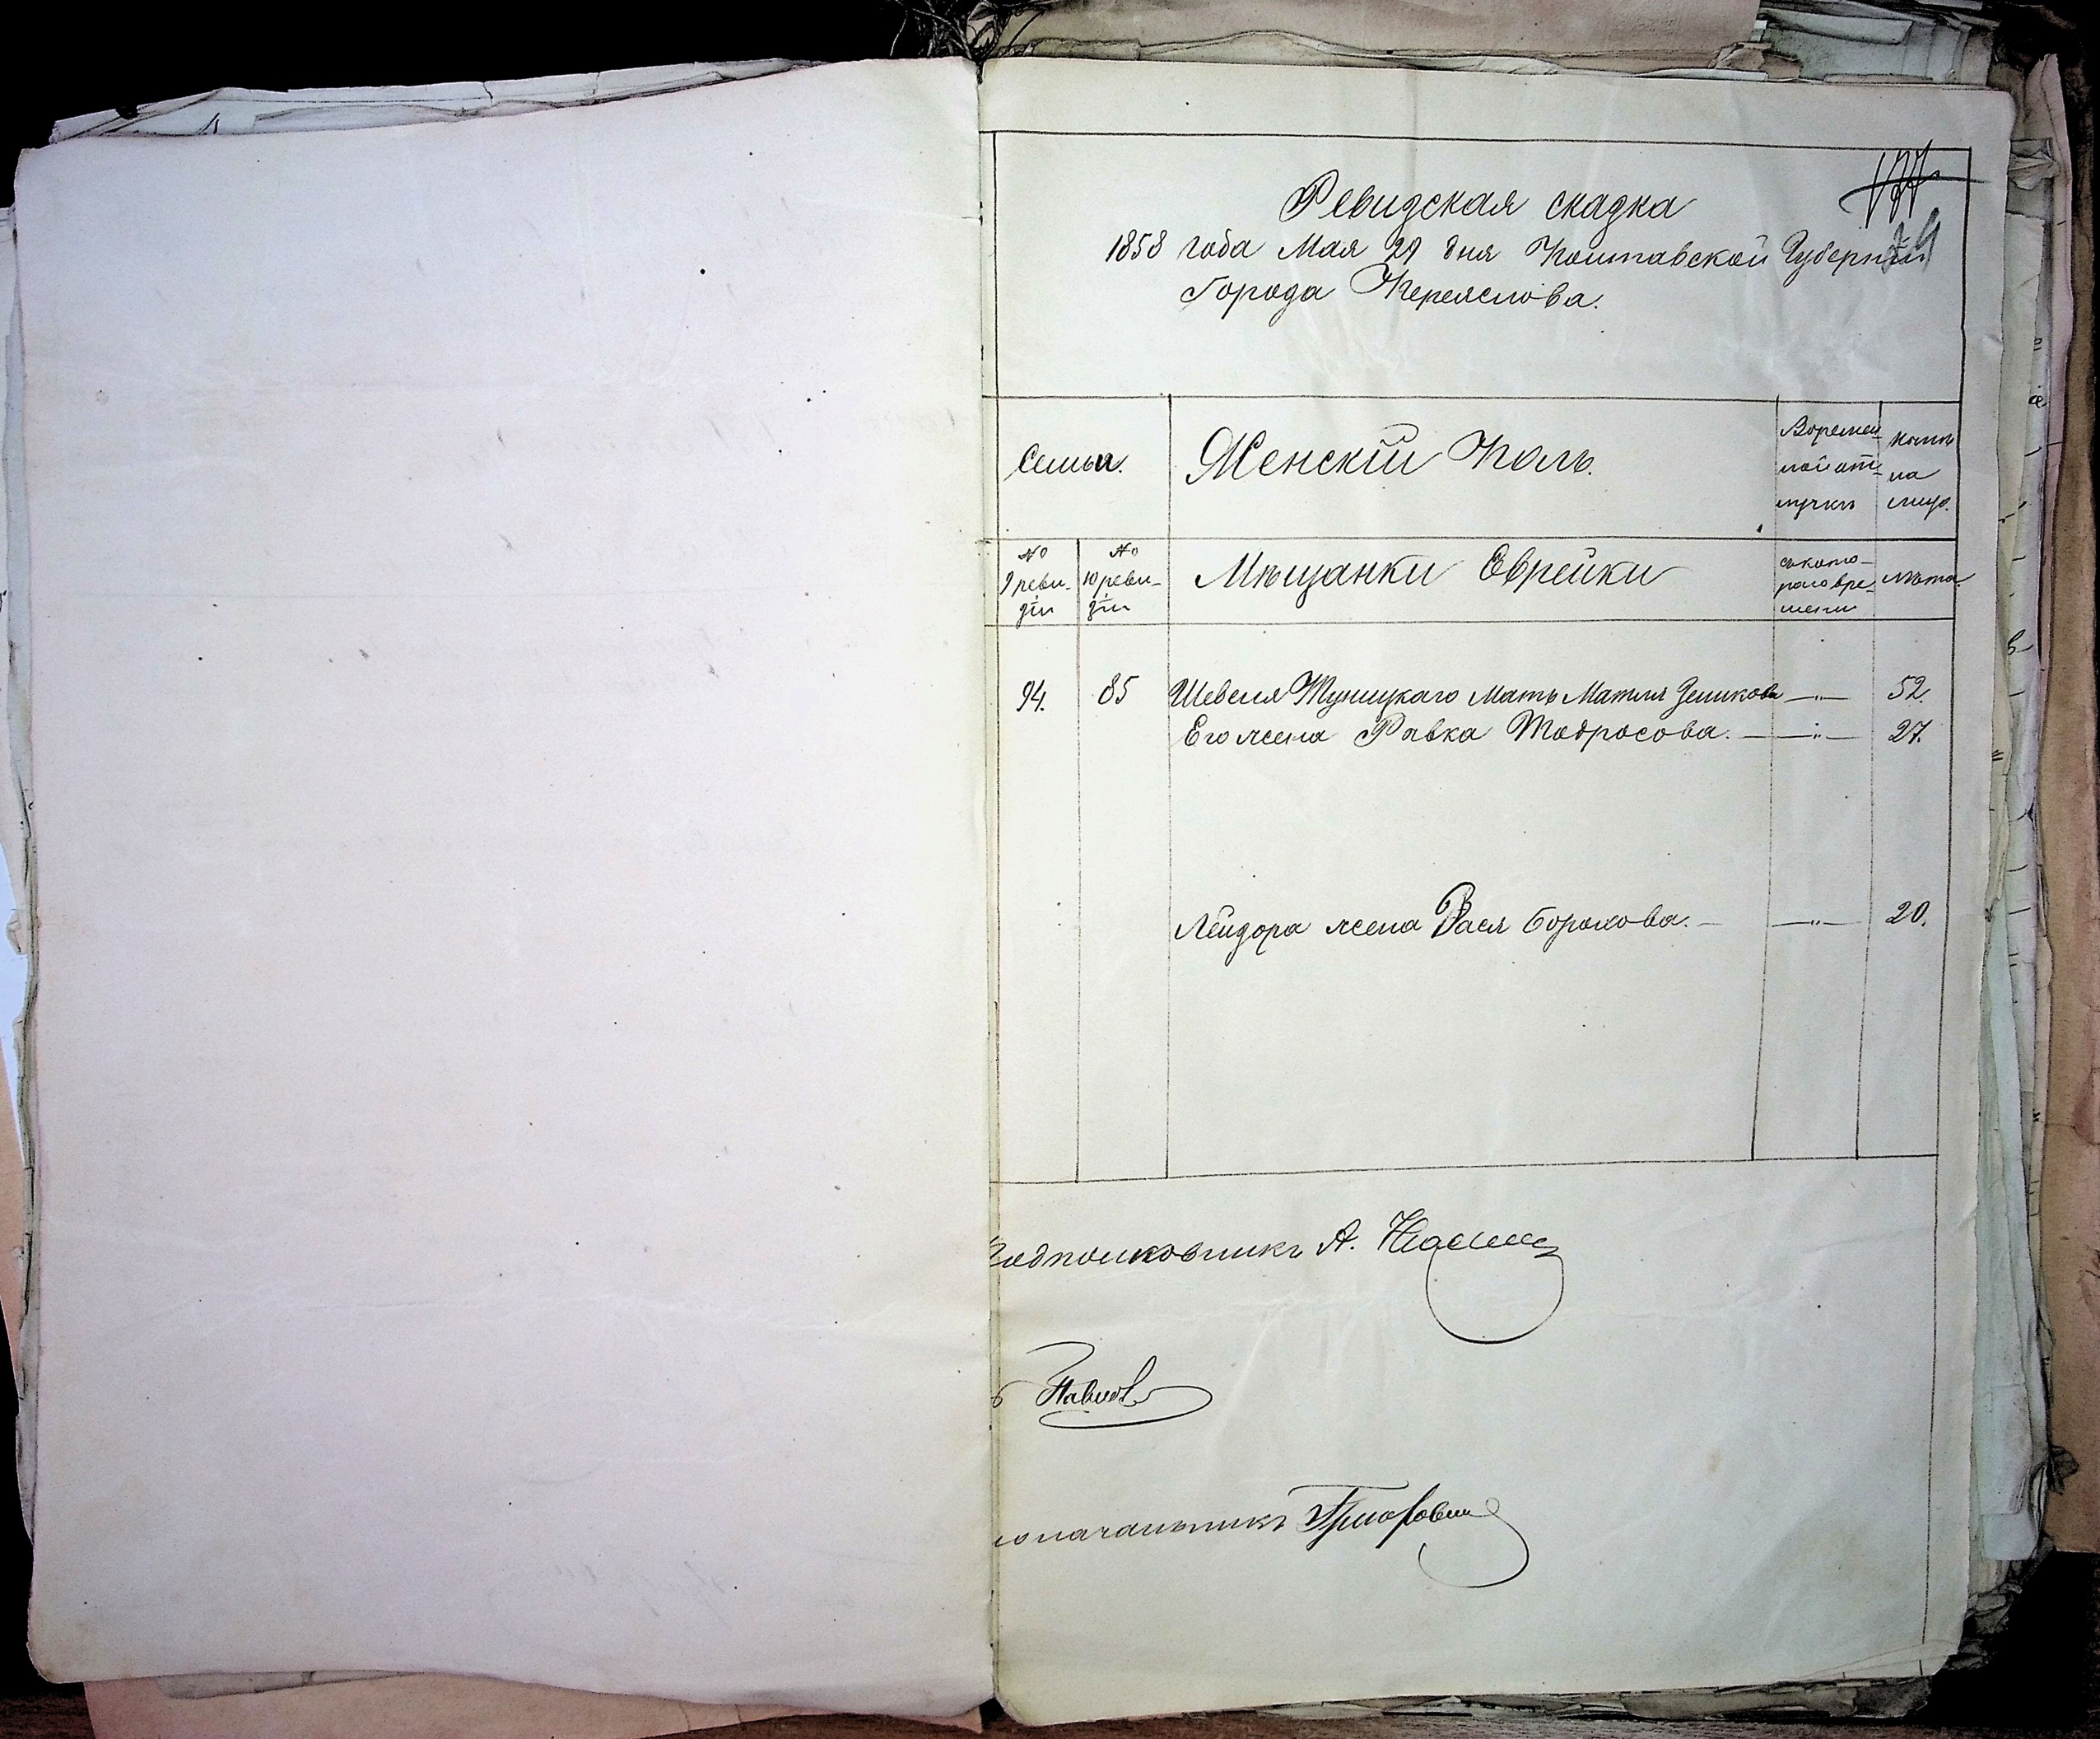 127
Ревизская сказка
1858 года Мая 29 дня Полтавской Губерніи
Города Переяслова.
Семьи.
Женскій Полъ.
Времен-
ной от-
лучкѣ
на
лицо.
№
9 реви-
зіи
№
10 реви-
зіи
Мѣщанки Еврейки
съ кото-
раго вре-
мени
лѣта.
94. 85 Шевеля Туницкаго Мать Матля Зеликова —"— 52.
Его жена Ривка Тодросова. — —"— 27.
Лейзора жена Вася Борохова. — —"— 20.
Подполковникъ А.
ъ Павлов
оначальникъ Григорович